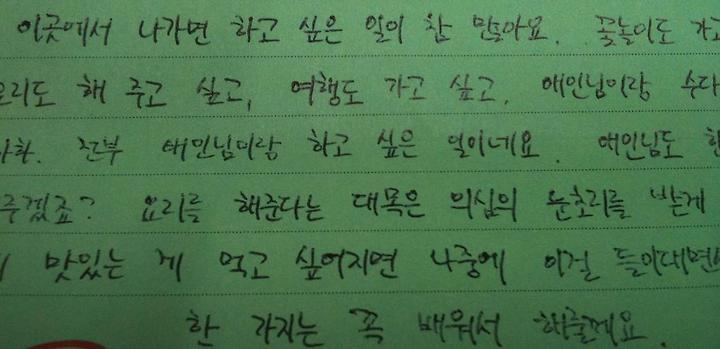 이곳에서 나가면 하고 싶은 일이 참 많아요. 꽃놀이도 가고
요리도 해 주고 싶고, 여행도 가고 싶고, 애인님이랑 수다
하하. 전부 애인님이랑 하고 싶은 일이네요. 애인님도
주겠죠? 요리를 해준다는 대목은 의심의 눈초리를 받게
맛있는 게 먹고 싶어지면 나중에 이걸 들이대면
한 가지는 꼭 배워서 해줄게요.